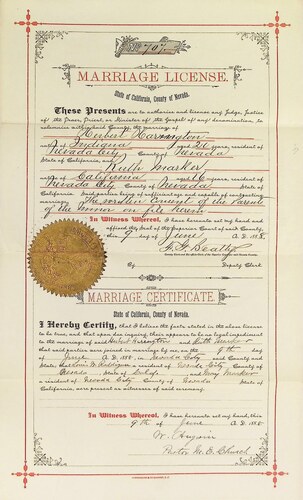 No. 707
MARRIAGE LICENSE.
State of California, County of Nevada.
These Presents are to authorize and license any Judge, Justice
of the Peace, Priest, or Minister of the Gospel of any denomination, to
solemnize within said County, the marriage of
Herbert Harrington
native of Indiana aged 24 years, resident of
Nevada City County of Nevada
State of California, and Ruth Marker
native of California aged 16 years, resident of
Nevada City County of Nevada
State of California. Said parties being of sufficient age and capable of contracting
marriage. The written consent of the Parents
of the Minor on file herein
In Witness Whereof, I have hereunto set my hand and
affixed the Seal of the Superior Court of said County,
this 9 day of June A.D. 188
County Clerk and Ex-officio Clerk of the Superior Court
By Deputy Clerk
MARRIAGE CERTIFICATE
State of California, County of Nevada.
I Hereby Certify, that I believe the facts stated in the above license
to be true, and that upon due inquiry, there appears to be no legal impediment
to the marriage of said Herbert Harrington and Ruth Marker
that said parties were joined in marriage by me, on the 9th day
of June A.D. 188 in Nevada City County and
State; that a resident of Grass City
County of Nevada State of and Mary
a resident of Nevada City County of Nevada State of
California, were present as witnesses of said ceremony.
In Witness Whereof, I have hereunto set my hand, this
9th day of June A.D. 188
Pastor M. E. Church